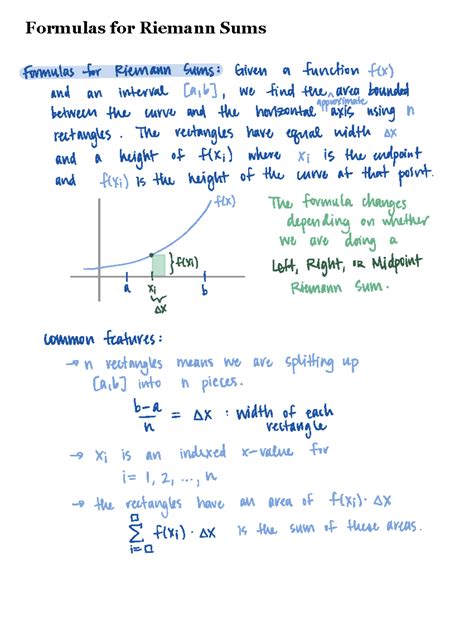 Formulas for Riemann Sums
Formulas for Riemann Sums: Given a function f(x)
and an interval [a,b], we find the area bounded
approximate
between the curve and the horizontal axis using n
rectangles. The rectangles have equal width Δx
and a height of f(xᵢ) where xᵢ is the endpoint
and f(xᵢ) is the height of the curve at that point.
f(x)
f(xᵢ)
a xᵢ b
Δx
The formula changes
depending on whether
we are doing a
Left, Right, or Midpoint
Riemann Sum.
common features:
→ n rectangles means we are splitting up
[a,b] into n pieces.
b-a
— = Δx : width of each
n rectangle
→ xᵢ is an indexed x-value for
i= 1, 2, ..., n
→ the rectangles have an area of f(xᵢ)·Δx
□
∑ f(xᵢ)·Δx is the sum of these areas.
i=□